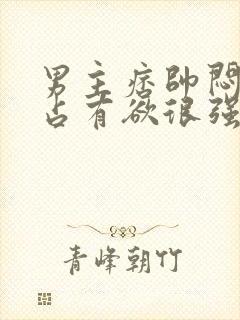 男主痞帥悶
占有欲很强
青峰朝竹